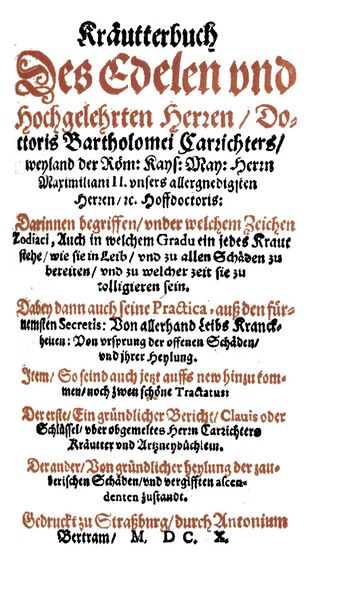 Kräutterbuch
Des Edelen vnd
Hochgelehrten Herren / Do-
ctoris Bartholomei Carrichters /
weyland der Röm: Kays: May: Herrn
Maximiliani II. vnsers allergnedigsten
Herren / ꝛc. Hoffdoctoris:
Darinnen begriffen / vnder welchem Zeichen
Zodiaci, Auch in welchem Gradu ein jedes Kraut
stehe / wie sie in Leib / vnd zu allen Schäden zu
bereiten / vnd zu welcher zeit sie zu
colligieren sein.
Dabey dann auch seine Practica, auß den für-
nemsten Secretis: Von allerhand Leibs Kranck-
heiten: Von vrsprung der offenen Schäden /
vnd jhrer Heylung.
Item / So seind auch jetzt auffs new hinzu kom-
men / noch zwen schöne Tractatus:
Der erste / Ein gründlicher Bericht / Clauis oder
Schlüssel / vber obgemeltes Herrn Carrichters
Kräutter vnd Artzneybüchlein.
Der ander / Von gründlicher heylung der zau-
berischen Schäden / vnd vergifften ascen-
denten zustandt.
Gedruckt zu Straßburg / durch Antonium
Bertram / M. DC. X.